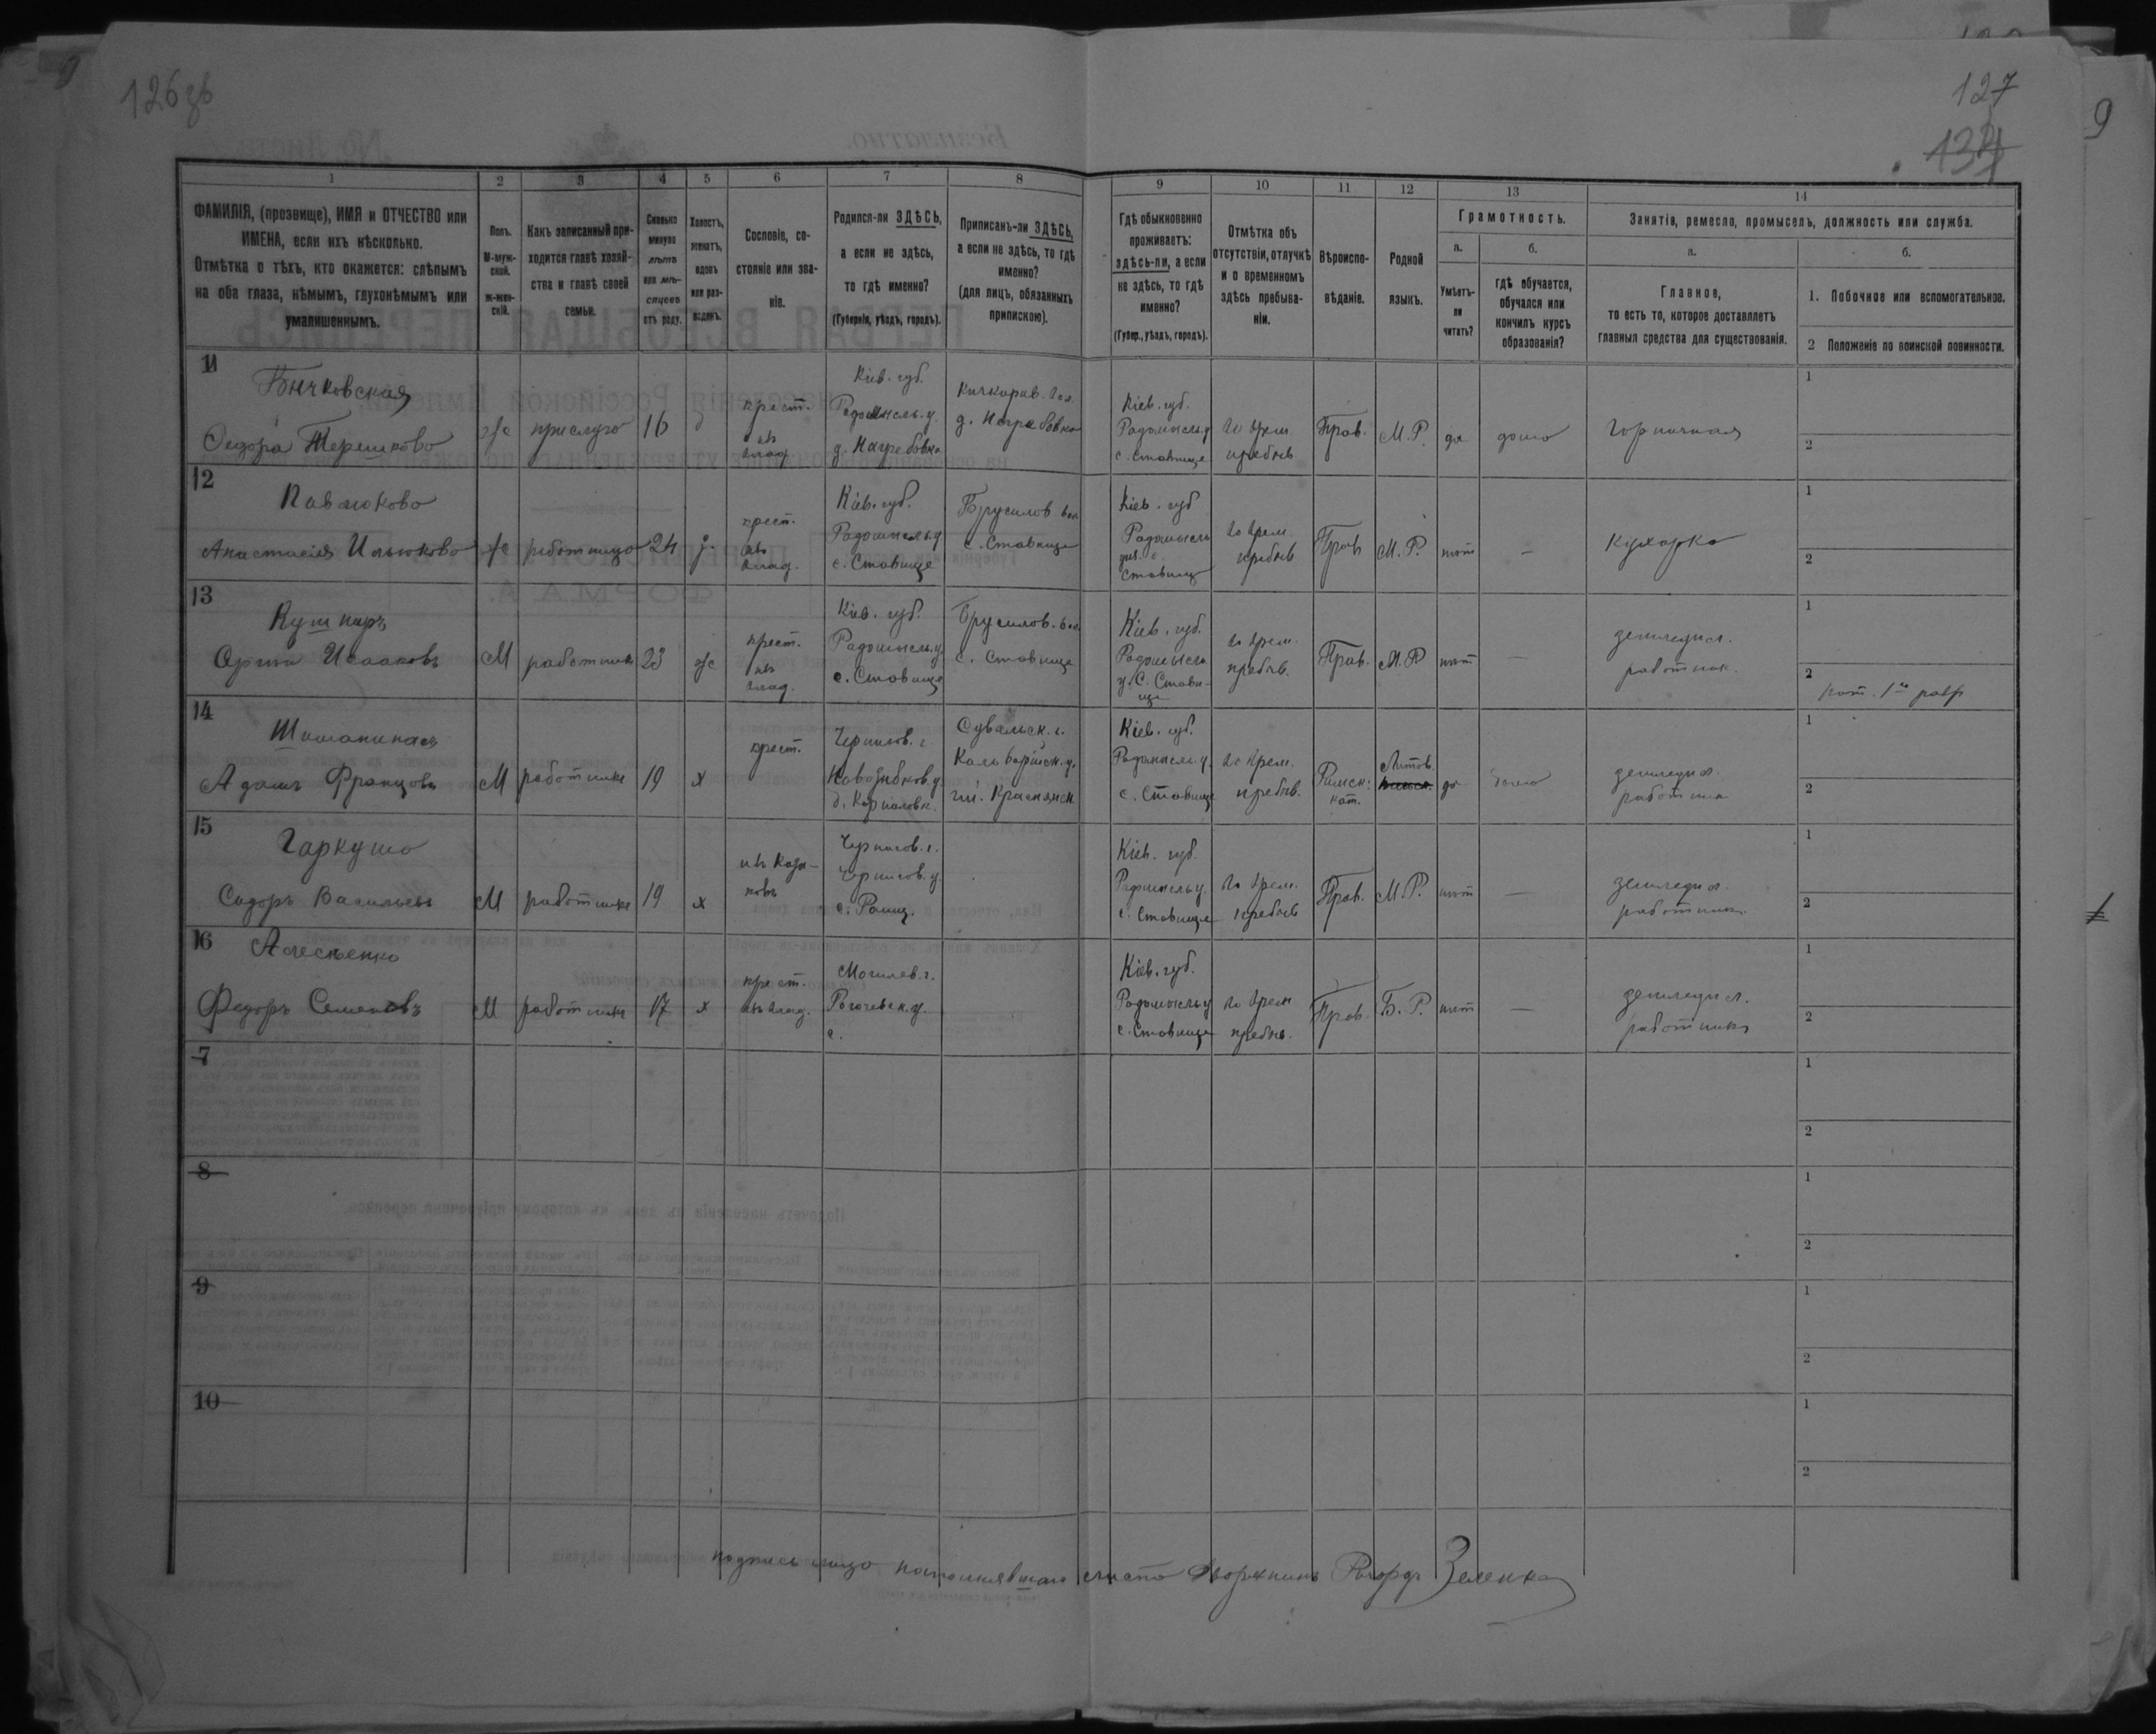 126зв
127
134
9
1
2
3
4
5
6
7
8
9
10
11
12
13
14
ФАМИЛІЯ, (прозвище), ИМЯ и ОТЧЕСТВО или
ИМЕНА, если ихъ нѣсколько.
Отмѣтка о тѣхъ, кто окажется: слѣпымъ
на оба глаза, нѣмымъ, глухонѣмымъ или
умалишеннымъ.
Полъ.
М-муж-
ской.
ж-жен-
скій.
Какъ записанный при-
ходится главѣ хозяй-
ства и главѣ своей
семьи.
Сколько
минуло
лѣтъ
или мѣ-
сяцевъ
отъ роду.
Холостъ,
женатъ,
вдовъ
или раз-
веденъ.
Сословіе, со-
стояніе или зва-
ніе.
Родился-ли ЗДѢСЬ,
а если не здѣсь,
то гдѣ именно?
(Губернія, уѣздъ, городъ).
Приписанъ-ли ЗДѢСЬ,
а если не здѣсь, то гдѣ
именно?
(для лицъ, обязанныхъ
припискою).
Гдѣ обыкновенно
проживаетъ:
здѣсь-ли, а если
не здѣсь, то гдѣ
именно?
(Губер., уѣздъ, городъ).
Отмѣтка объ
отсутствіи, отлучкѣ
и о временномъ
здѣсь пребыва-
ніи.
Вѣроиспо-
вѣданіе.
Родной
языкъ.
Грамотность.
а.
Умѣетъ-
ли
читать?
б.
гдѣ обучается,
обучался или
кончилъ курсъ
образованія?
Занятія, ремесло, промыселъ, должность или служба.
а.
Главное,
то есть то, которое доставляетъ
главныя средства для существованія.
б.
1. Побочное или вспомогательное.
2 Положеніе по воинской повинности.
11
Бычковская
Ѳедора Терешкова
ж
прислуга
16
д
крест.
изъ
влад.
Кіев. губ.
Радомысль. у.
д. Нагребовка
д. Нагребовка
Кіев. губ.
Радомысль. у
с. Ставище
врем.
пребыв
Прав.
М.Р.
да
дома
Горничная
1
2
12
Павлюкова
Анастасія Ильюкова
ж
работница
24
крест.
изъ
влад.
Кіев. губ.
Радомысль у
с. Ставище
Брусилов вол.
с. Ставище
Кіев. губ
Радомысль
Ставище
врем.
пребыв
Прав
М.Р.
нѣт
—
Кухарка
1
2
13
Кушниръ
Исааковъ
М
работникъ
23
ж
крест.
изъ
влад.
Кіев. губ.
Радомысль. у.
с. Ставище
Брусилов. вол.
с. Ставище
Кіев. губ.
Радомысль
у. С. Стави-
ще
врем.
пребыв.
Прав.
М.Р
нѣт
—
земледѣл.
работник.
1
2
14
Адамъ Францовъ
М
работникъ
19
х
крест.
Чернигов. г.
Новозыбков. у.
Сувальск. г.
Кальварійск. у.
гм. Краснянск
Кіев. губ.
Радомысль. у.
с. Ставище
врем.
пребыв.
Римск.
кат.
Литов.
да
дома
земледѣл.
работник
1
2
15
Гаркуша
Сидоръ Васильевъ
М
работникъ
19
х
изъ Каза-
ковъ
Чернигов. г.
Чернигов. у.
Кіев. губ.
Радомысль у.
с. Ставище
врем.
пребыв
Прав.
М.Р.
нѣт
—
земледѣл.
работник.
1
2
16
Алесѣенко
Федоръ Семеновъ
М
работникъ
17
х
крест.
изъ влад.
Могилев. г.
Рогачевск. у.
с.
Кіев. губ.
Радомысль у
с. Ставище
врем
пребыв.
Прав.
Б.Р.
нѣт
—
земледѣл.
работникъ
1
2
7
1
2
8
1
2
9
1
2
10
1
2
подпись лица наполнявшаго листъ Дворянинъ Зеленка